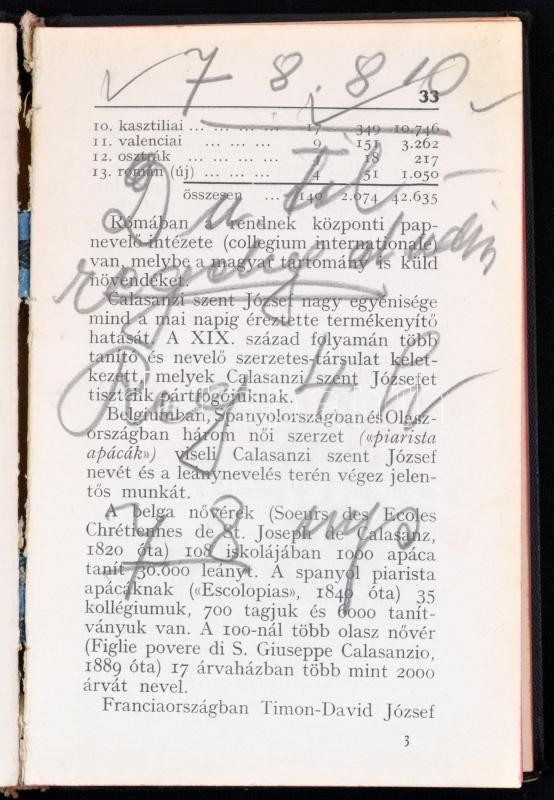 7 8. 8 10
33
10. kasztiliai ... ... ... ... 17 349 10.746
11. valenciai ... ... ... 9 151 3.262
12. osztrák ... ... ... ... 4 18 217
13. román (új) ... ... ... 4 51 1.050
összesen ... 140 2.074 42.635
Rómában a rendnek központi pap-
nevelő-intézete (collegium internationale)
van, melybe a magyar tartomány is küld
növendéket.
Calasanzi szent József nagy egyénisége
mind a mai napig éreztette termékenyítő
hatását. A XIX. század folyamán több
tanító és nevelő szerzetes-társulat kelet-
kezett, melyek Calasanzi szent Józsefet
tisztelik pártfogójuknak.
Belgiumban, Spanyolországban és Olasz-
országban három női szerzet («piarista
apácák») viseli Calasanzi szent József
nevét és a leánynevelés terén végez jelen-
tős munkát.
A belga nővérek (Soeurs des Ecoles
Chrétiennes de St. Joseph de Calasanz,
1820 óta) 108 iskolájában 1000 apáca
tanít 30.000 leányt. A spanyol piarista
apácáknak («Escolopias», 1849 óta) 35
kollégiumuk, 700 tagjuk és 6000 tanít-
ványuk van. A 100-nál több olasz nővér
(Figlie povere di S. Giuseppe Calasanzio,
1889 óta) 17 árvaházban több mint 2000
árvát nevel.
Franciaországban Timon-David József
3